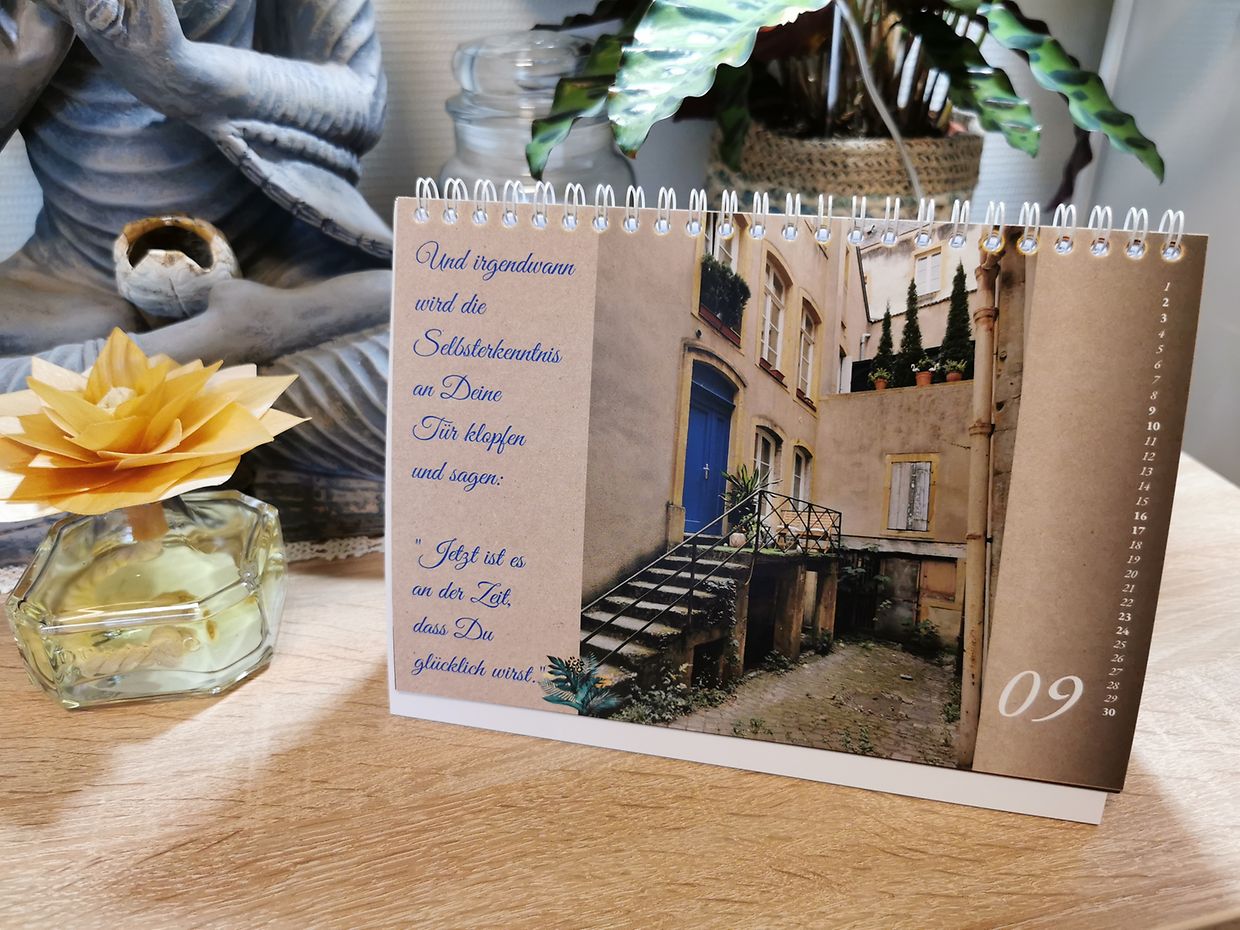 Und irgendwann
wird die
Selbsterkenntnis
an Deine
Tür klopfen
und sagen:
"Jetzt ist es
an der Zeit,
dass Du
glücklich wirst."
1
2
3
4
5
6
7
8
9
10
11
12
13
14
15
16
17
18
19
20
21
22
23
24
25
26
27
28
29
30
09